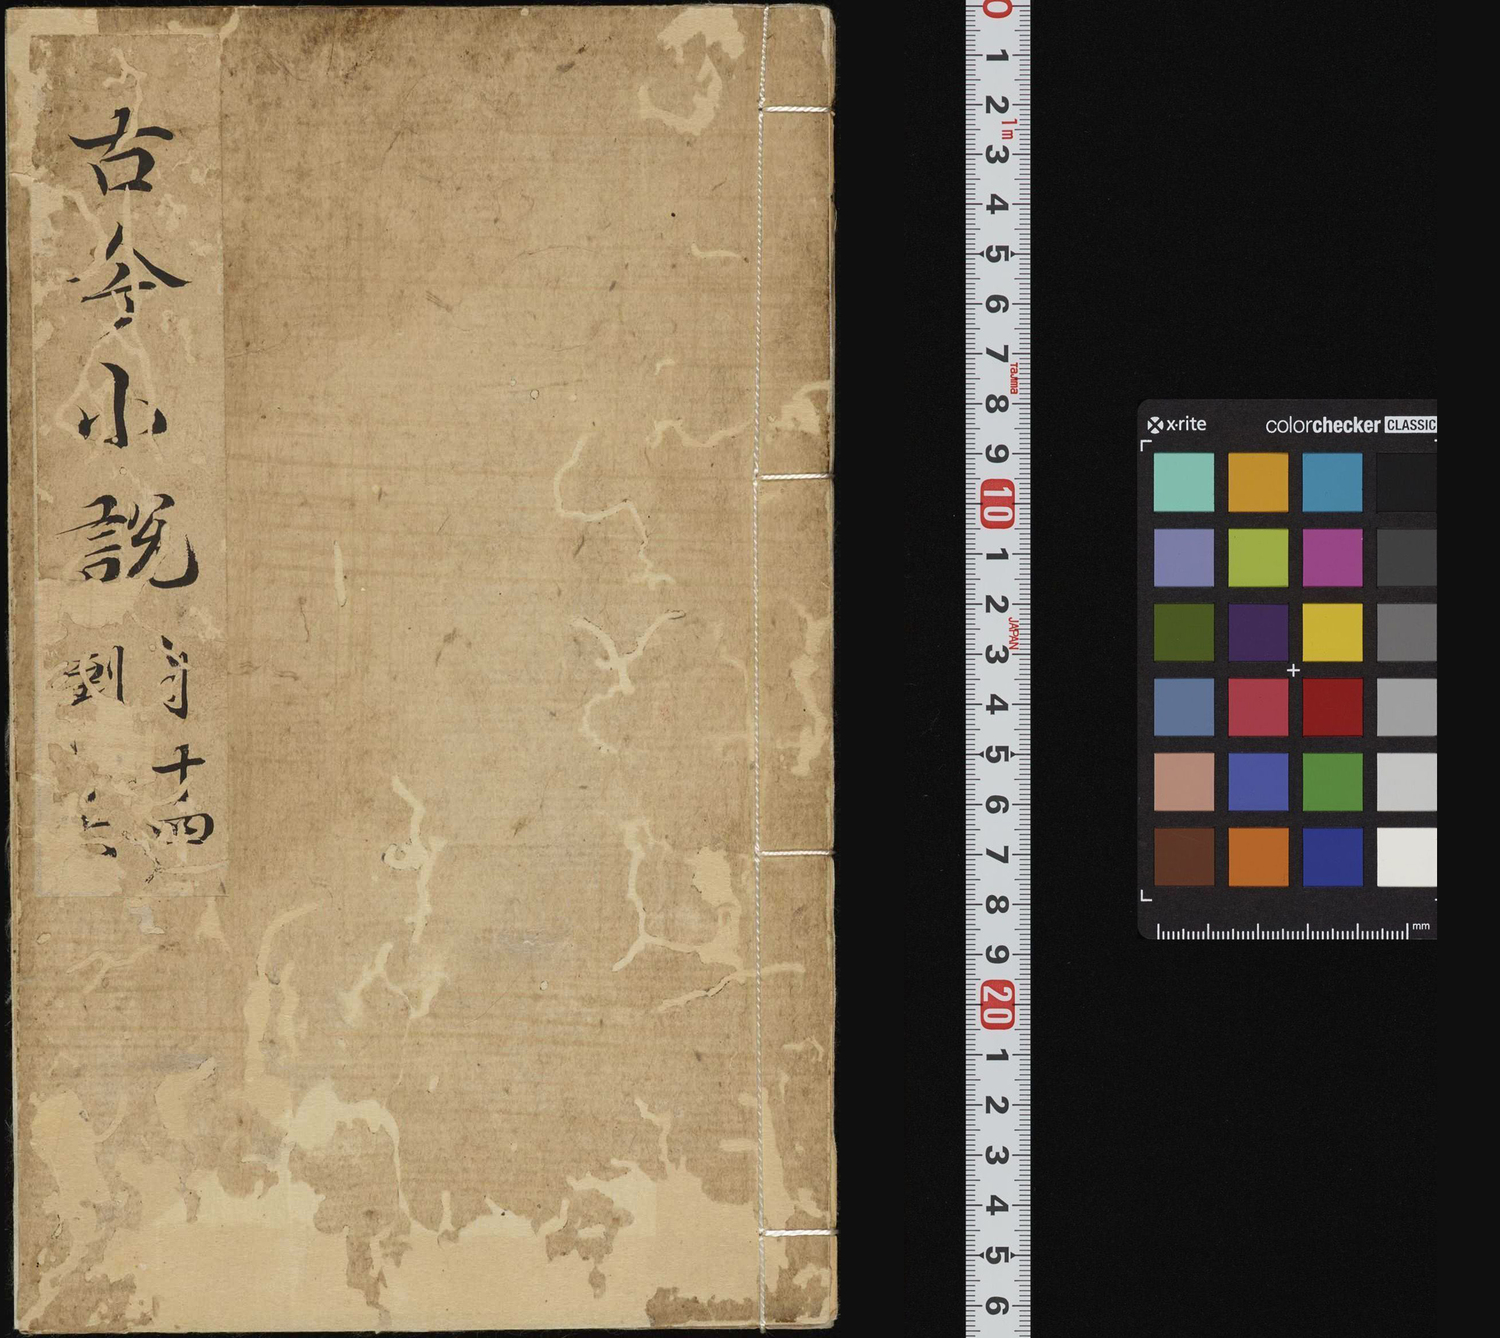 古今小說
十四
劉
0 1 2 3 4 5 6 7 8 9 10 1 2 3 4 5 6 7 8 9 20 1 2 3 4 5 6
1m
Tajima
JAPAN
x-rite
colorchecker CLASSIC
mm